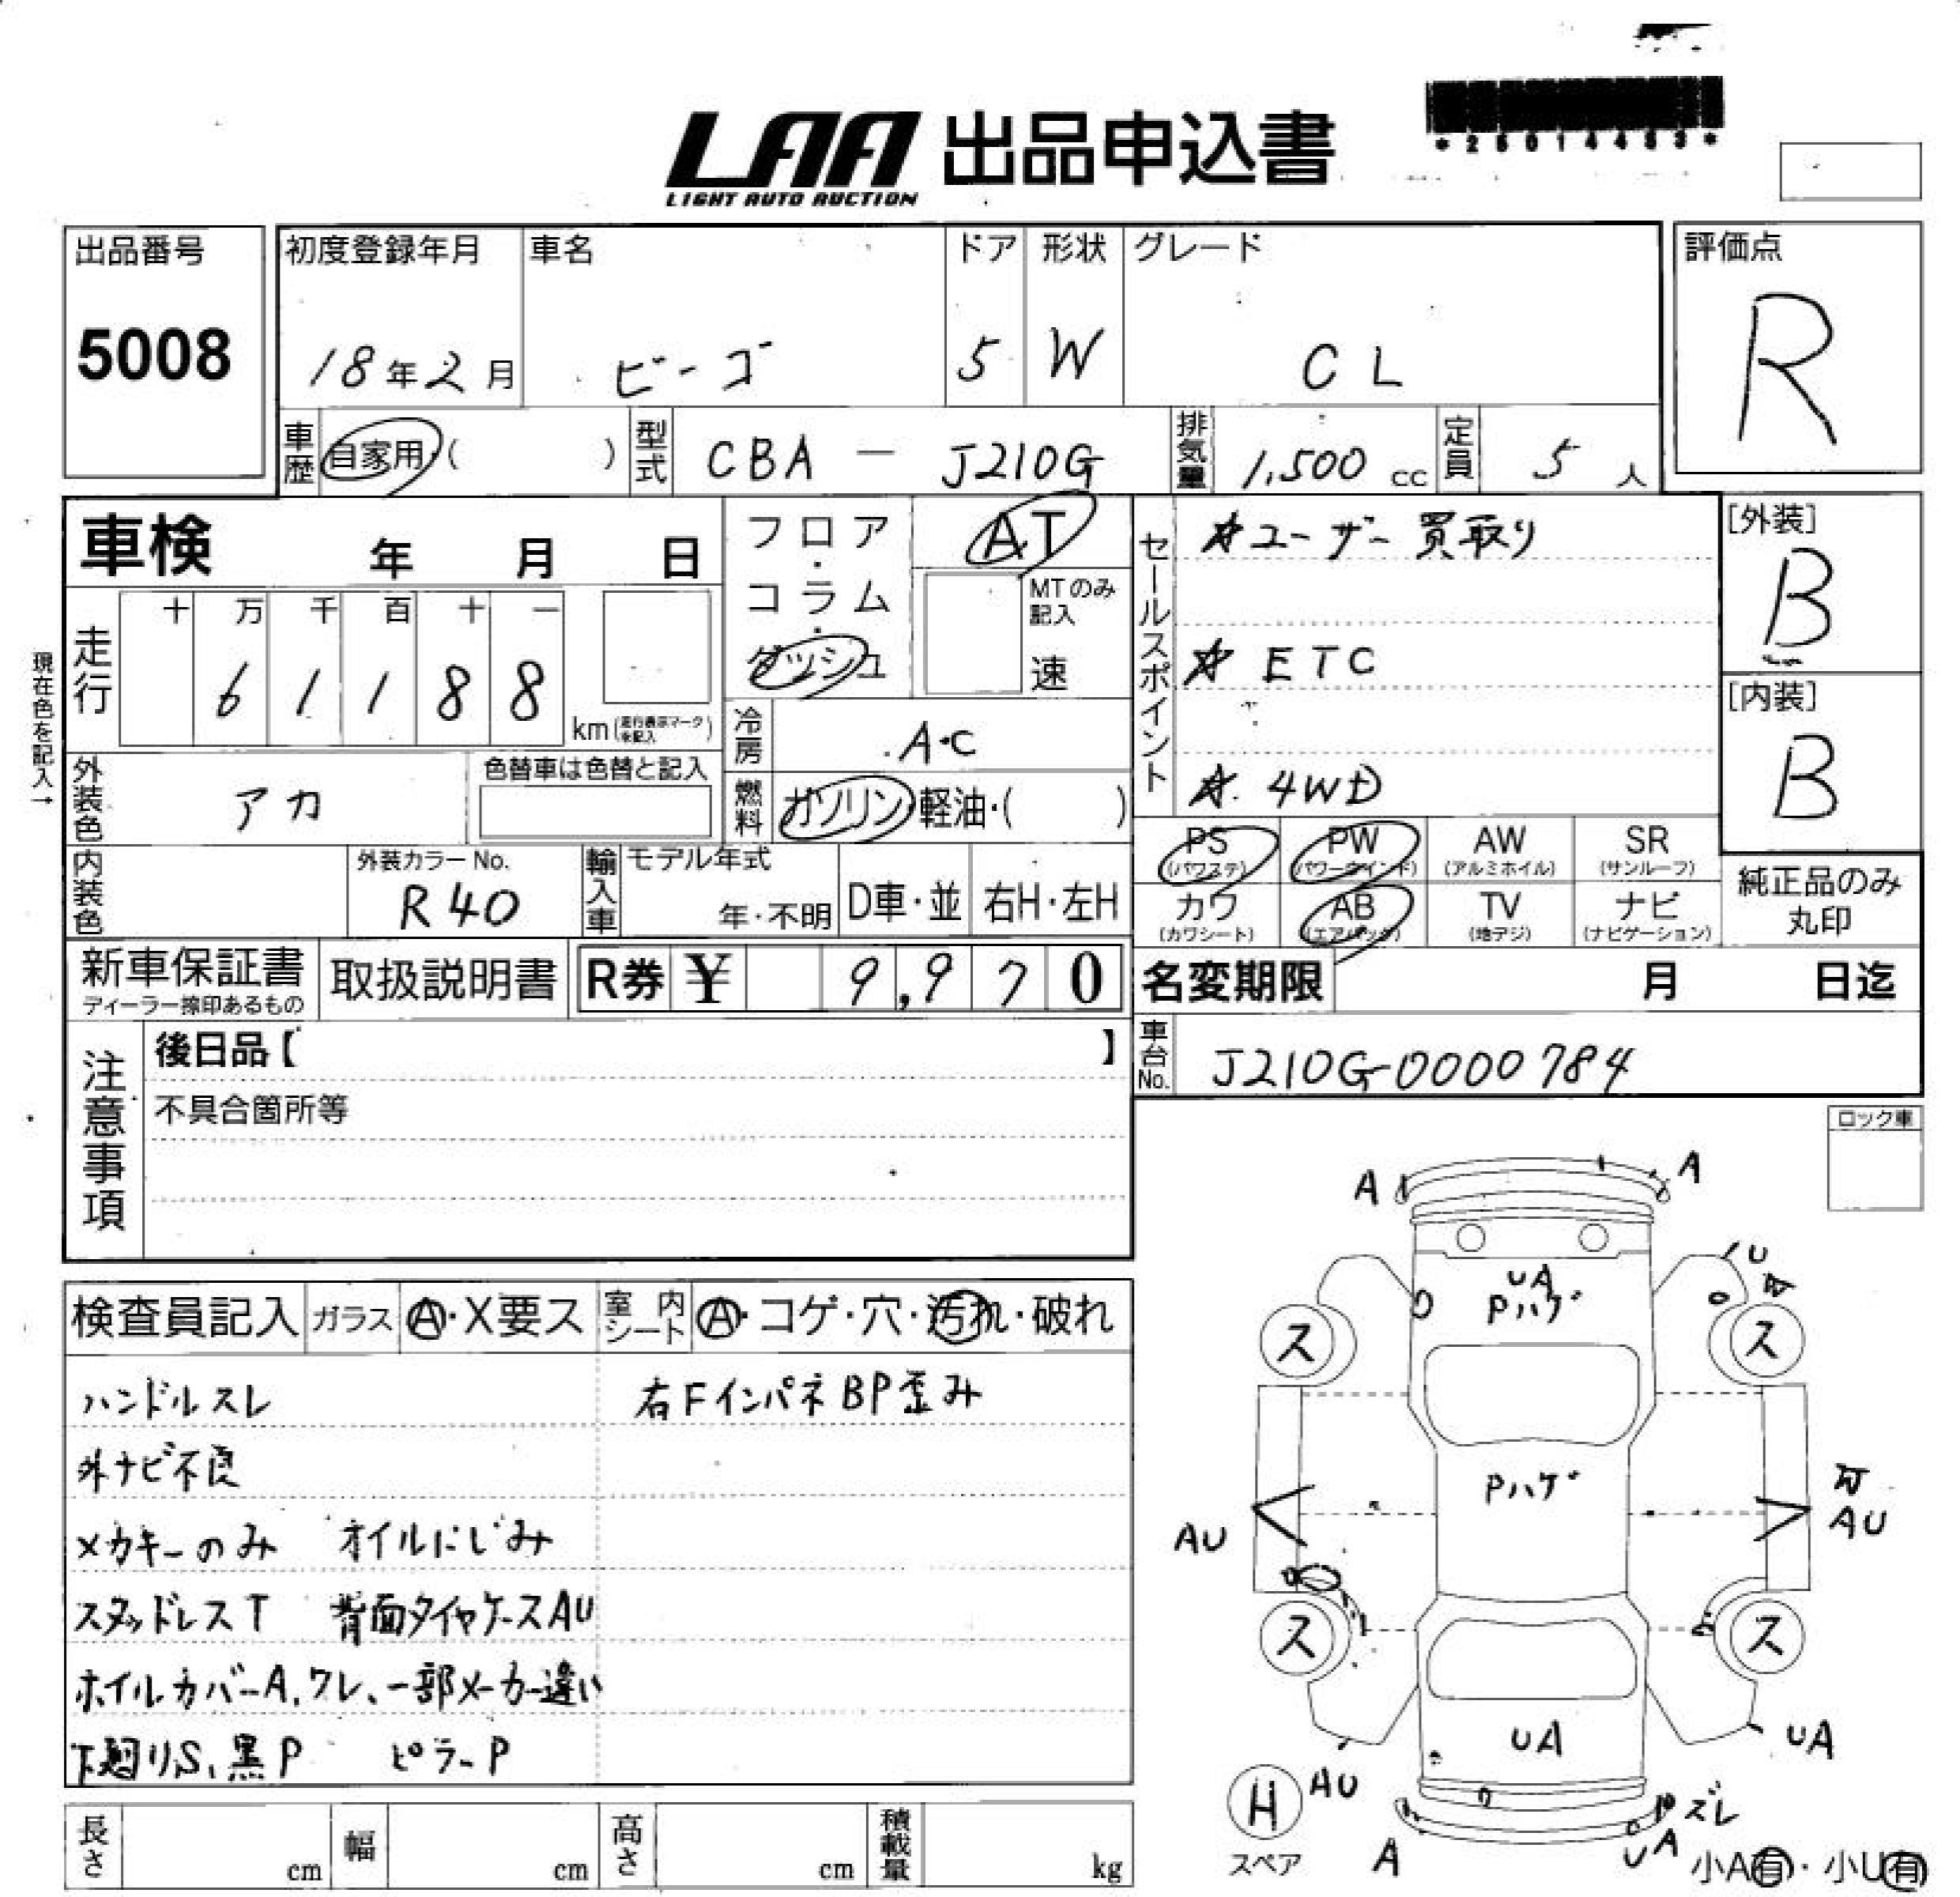 LAA 出品申込書
LIGHT AUTO AUCTION
出品番号 初度登録年月 車名 ドア 形状 グレード 評価点
5008 18年2月 ビーゴ 5 W CL R
車歴 自家用( ) 型式 CBA - J210G 排気量 1,500 cc 定員 5 人
車検 年 月 日
フロア・コラム・ダッシュ
AT
MTのみ記入
速
セールスポイント
☆ユーザー買取り
☆ ETC
☆ 4WD
[外装]
B
[内装]
B
現在色を記入→
走行
十 万 千 百 十 一
6 1 1 8 8
km(走行表示マーク未記入)
冷房 A・C
外装色 アカ
色替車は色替と記入
燃料 ガソリン・軽油・( )
PS (パワステ) PW (パワーウインド) AW (アルミホイル) SR (サンルーフ)
カワ (カワシート) AB (エアバッグ) TV (地デジ) ナビ (ナビゲーション)
純正品のみ
丸印
内装色
外装カラーNo.
R40
輸入車 モデル年式
年・不明 D車・並 右H・左H
新車保証書
ディーラー捺印あるもの
取扱説明書 R券 ¥ 9,970
名変期限 月 日迄
注意事項
後日品【 】
不具合箇所等
車台No. J210G-0000784
ロック車
検査員記入 ガラス A・X要ス 室内シート A・コゲ・穴・汚れ・破れ
ハンドルスレ 右FインパネBP歪み
外ナビ不良
メカキーのみ オイルにじみ
スタッドレスT 背面タイヤケースAU
ホイルカバーA,ワレ、一部メーカー違い
下廻りS、黒P ピラーP
A A
U
UA
Pハゲ
A
ス ス
Pハゲ
AU AU
ス ス
UA UA
H AU
スペア
ズレ
A UA
小A有・小U有
長さ cm 幅 cm 高さ cm 積載量 kg